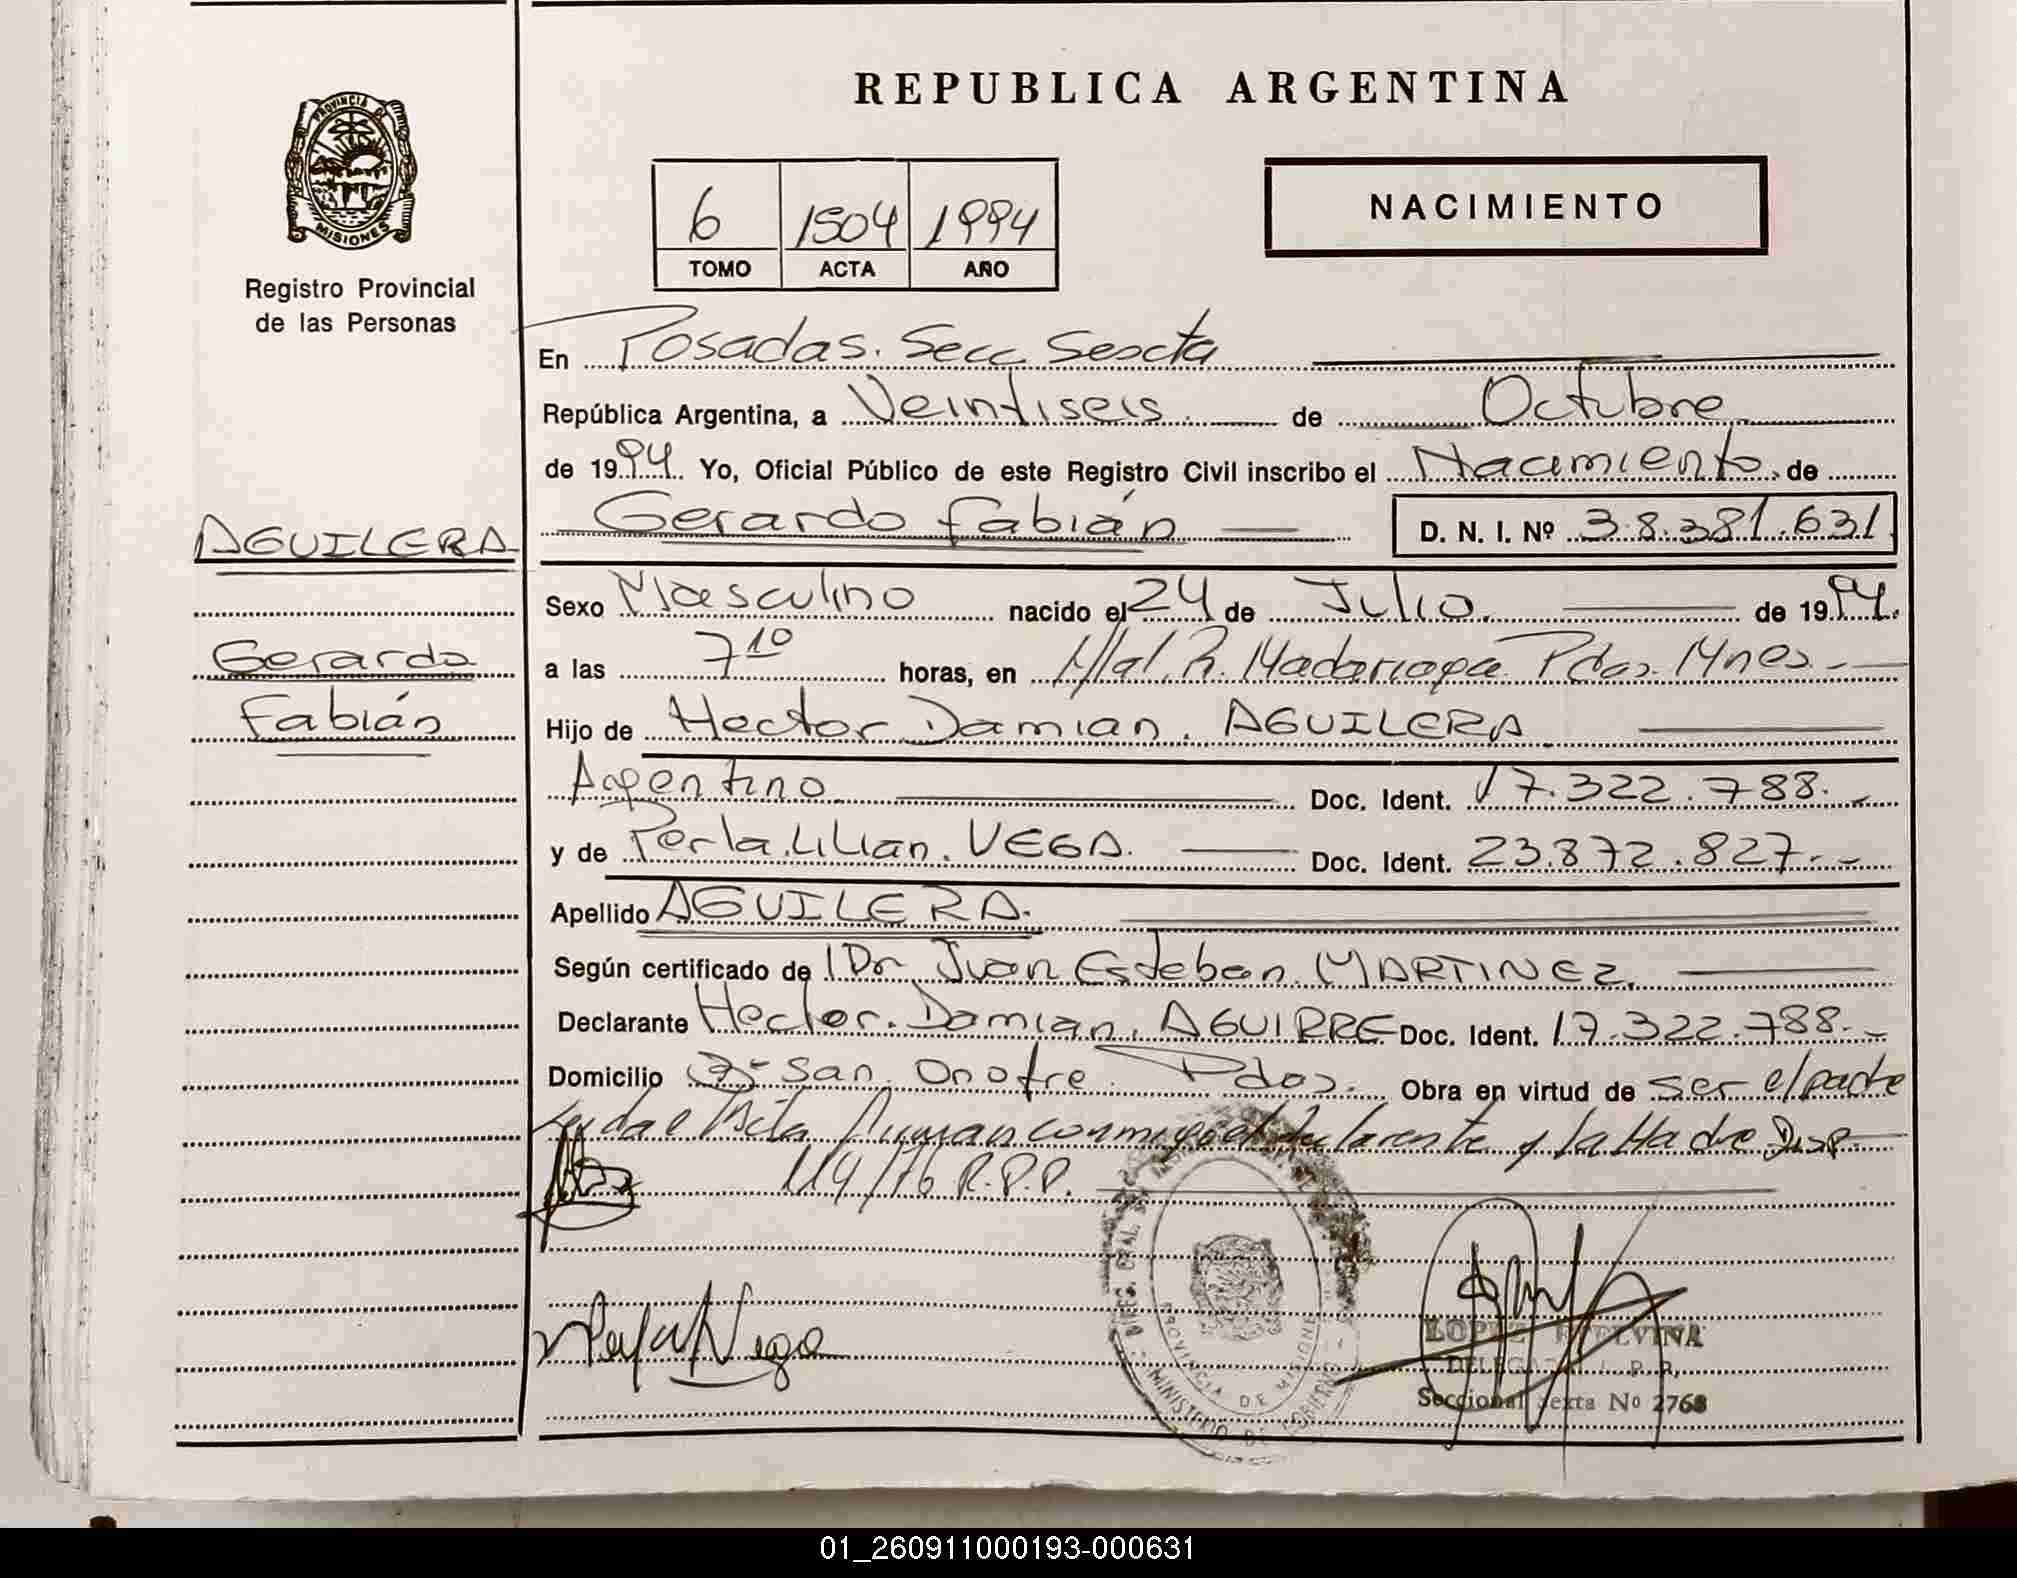 REPUBLICA ARGENTINA
PROVINCIA DE
MISIONES
Registro Provincial
de las Personas
6 1504 1994
TOMO ACTA AÑO
NACIMIENTO
En Posadas. Secc. Sexta
República Argentina, a Veintiseis de Octubre
de 1994 Yo, Oficial Público de este Registro Civil inscribo el Nacimiento de
Gerardo Fabián D. N. I. Nº 38.381.631
AGUILERA
Gerardo
Fabián
Sexo Masculino nacido el 24 de Julio de 1994.
a las 7¹⁰ horas, en H/al. R. Madariaga Pdas. Mnes.
Hijo de Hector Damian. AGUILERA
Argentino Doc. Ident. 17.322.788.
y de Perla Lilian. VEGA. Doc. Ident. 23.872.827.
Apellido AGUILERA.
Según certificado de Dr Juan Esteban MARTINEZ.
Declarante Hector. Damian. AGUIRRE Doc. Ident. 17.322.788.
Domicilio Bº San Onofre. Pdas. Obra en virtud de ser el padre
Leida el Acta firman conmigo el declarante y la Madre Disp.
114/76 R.P.P.
DIREC. GRAL.
PROVINCIA DE MISIONES
MINISTERIO DE GOBIERNO
LOPEZ
Seccional Sexta Nº 2768
01_260911000193-000631